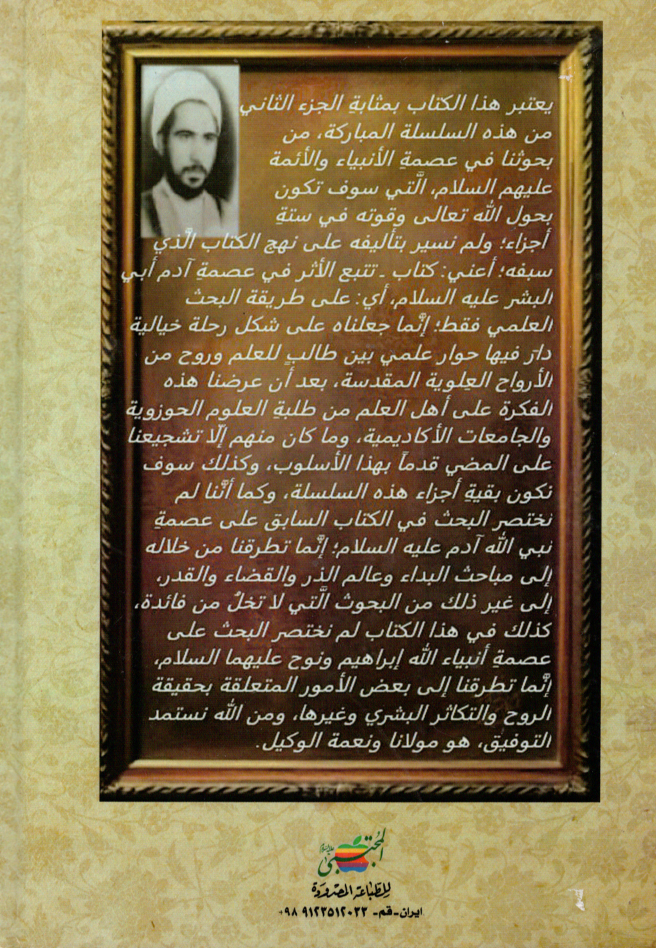 يعتبر هذا الكتاب بمثابةِ الجزء الثاني
من هذه السلسلة المباركة، من
بحوثنا في عصمةِ الأنبياء والأئمة
عليهم السلام، الَّتي سوف تكون
بحول الله تعالى وقوته في ستةِ
أجزاء؛ ولم نسير بتأليفه على نهج الكتاب الَّذي
سبقه؛ أعني: كتاب ـ تتبع الأثر في عصمةِ آدم أبي
البشر عليه السلام، أي: على طريقة البحث
العلمي فقط؛ إنَّما جعلناه على شكل رحلة خيالية
دارَ فيها حوار علمي بين طالبٍ للعلم وروح من
الأرواح العِلوية المقدسة، بعد أن عرضنا هذه
الفكرة على أهل العلم من طلبةِ العلوم الحوزوية
والجامعات الأكاديمية، وما كان منهم إلَّا تشجيعنا
على المضي قدماً بهذا الأسلوب، وكذلك سوف
تكون بقيةِ أجزاء هذه السلسلة، وكما أنَّنا لم
نختصر البحث في الكتاب السابق على عصمةِ
نبي الله آدم عليه السلام؛ إنَّما تطرقنا من خلاله
إلى مباحث البداء وعالم الذر والقضاء والقدر،
إلى غير ذلك من البحوث الَّتي لا تخلُ من فائدة،
كذلك في هذا الكتاب لم نختصر البحث على
عصمةِ أنبياء الله إبراهيم ونوح عليهما السلام،
إنَّما تطرقنا إلى بعض الأمور المتعلقة بحقيقة
الروح والتكاثر البشري وغيرها، ومن الله نستمد
التوفيق، هو مولانا ونعمة الوكيل.
المجتبى
للطباعة المحدودة
ايران-قم- ٩١٢٣٥١٢٠٣٣ ٩٨+